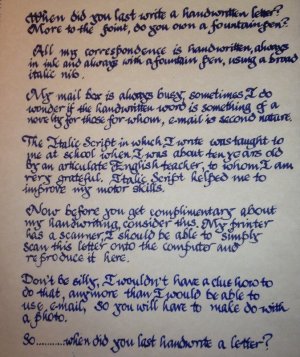 When did you last write a handwritten letter?
More to the point, do you own a fountain pen?
All my correspondence is handwritten, always
in ink and always with a fountain pen, using a broad
italic nib.
My mail box is always busy, sometimes, I do
wonder if the handwritten word is something of a
novelty for those for whom, e.mail is second nature.
The Italic Script in which, I write was taught to
me at school when, I was about ten years old
by an articulate English teacher, to whom, I am
very grateful. Italic Script helped me to
improve my motor skills.
Now before you get complimentary about
my handwriting, consider this. My printer
has a scanner, I should be able to simply
scan this letter onto the computer and
reproduce it here.
Don't be silly, I wouldn't have a clue how to
do that, anymore than I would be able to
use, e.mail, so you will have to make do with
a photo.
So...........when did you last handwrite a letter?